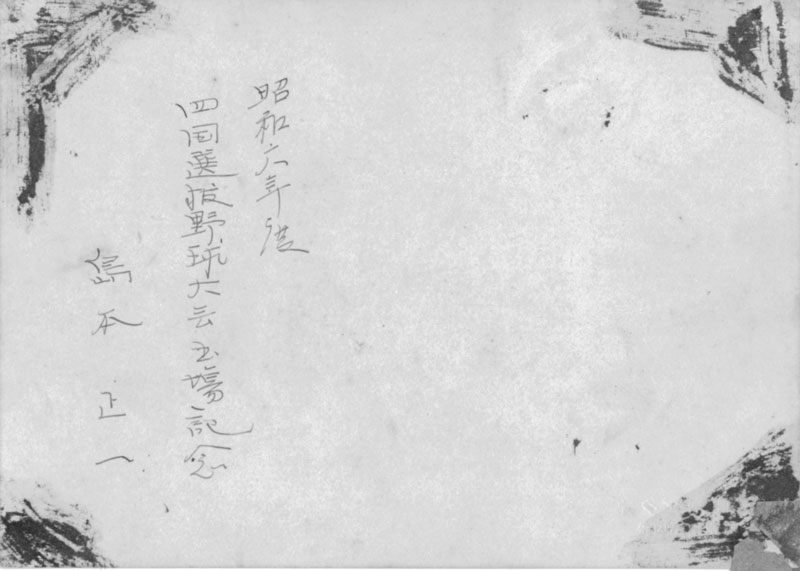 昭和六年度
四国選抜野球大会出場記念
島本正一